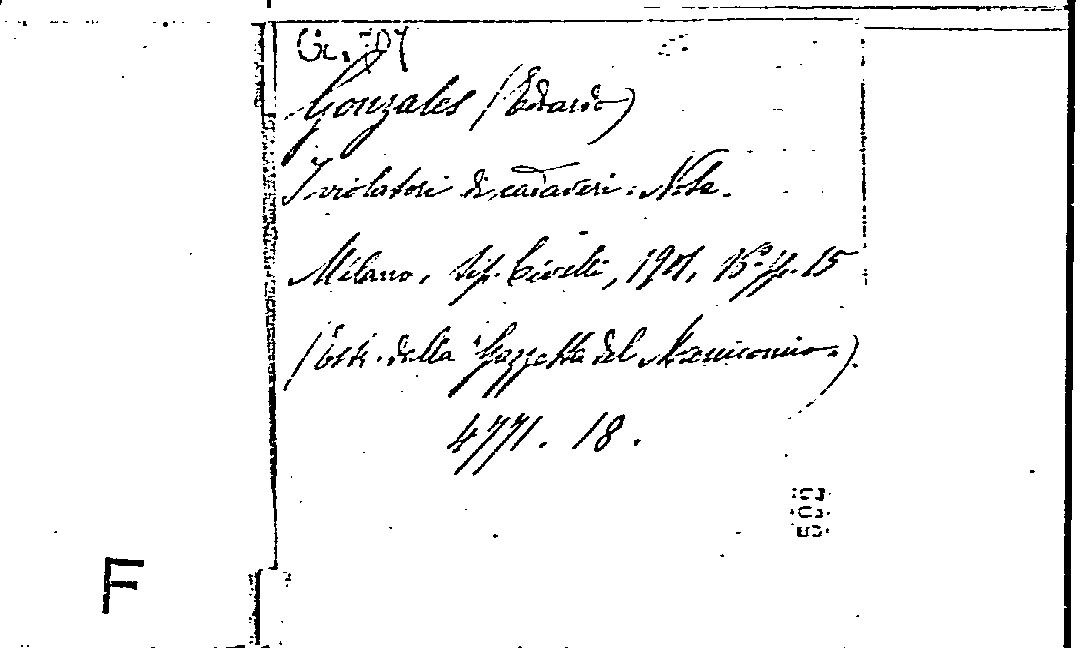 Gonzales (Edoardo)
I violatori di cadaveri. Nota.
Milano, tip. Civelli, 1901, 16° pp. 15
(Estr. dalla "Gazzetta del Manicomio.)
4771. 18.
F